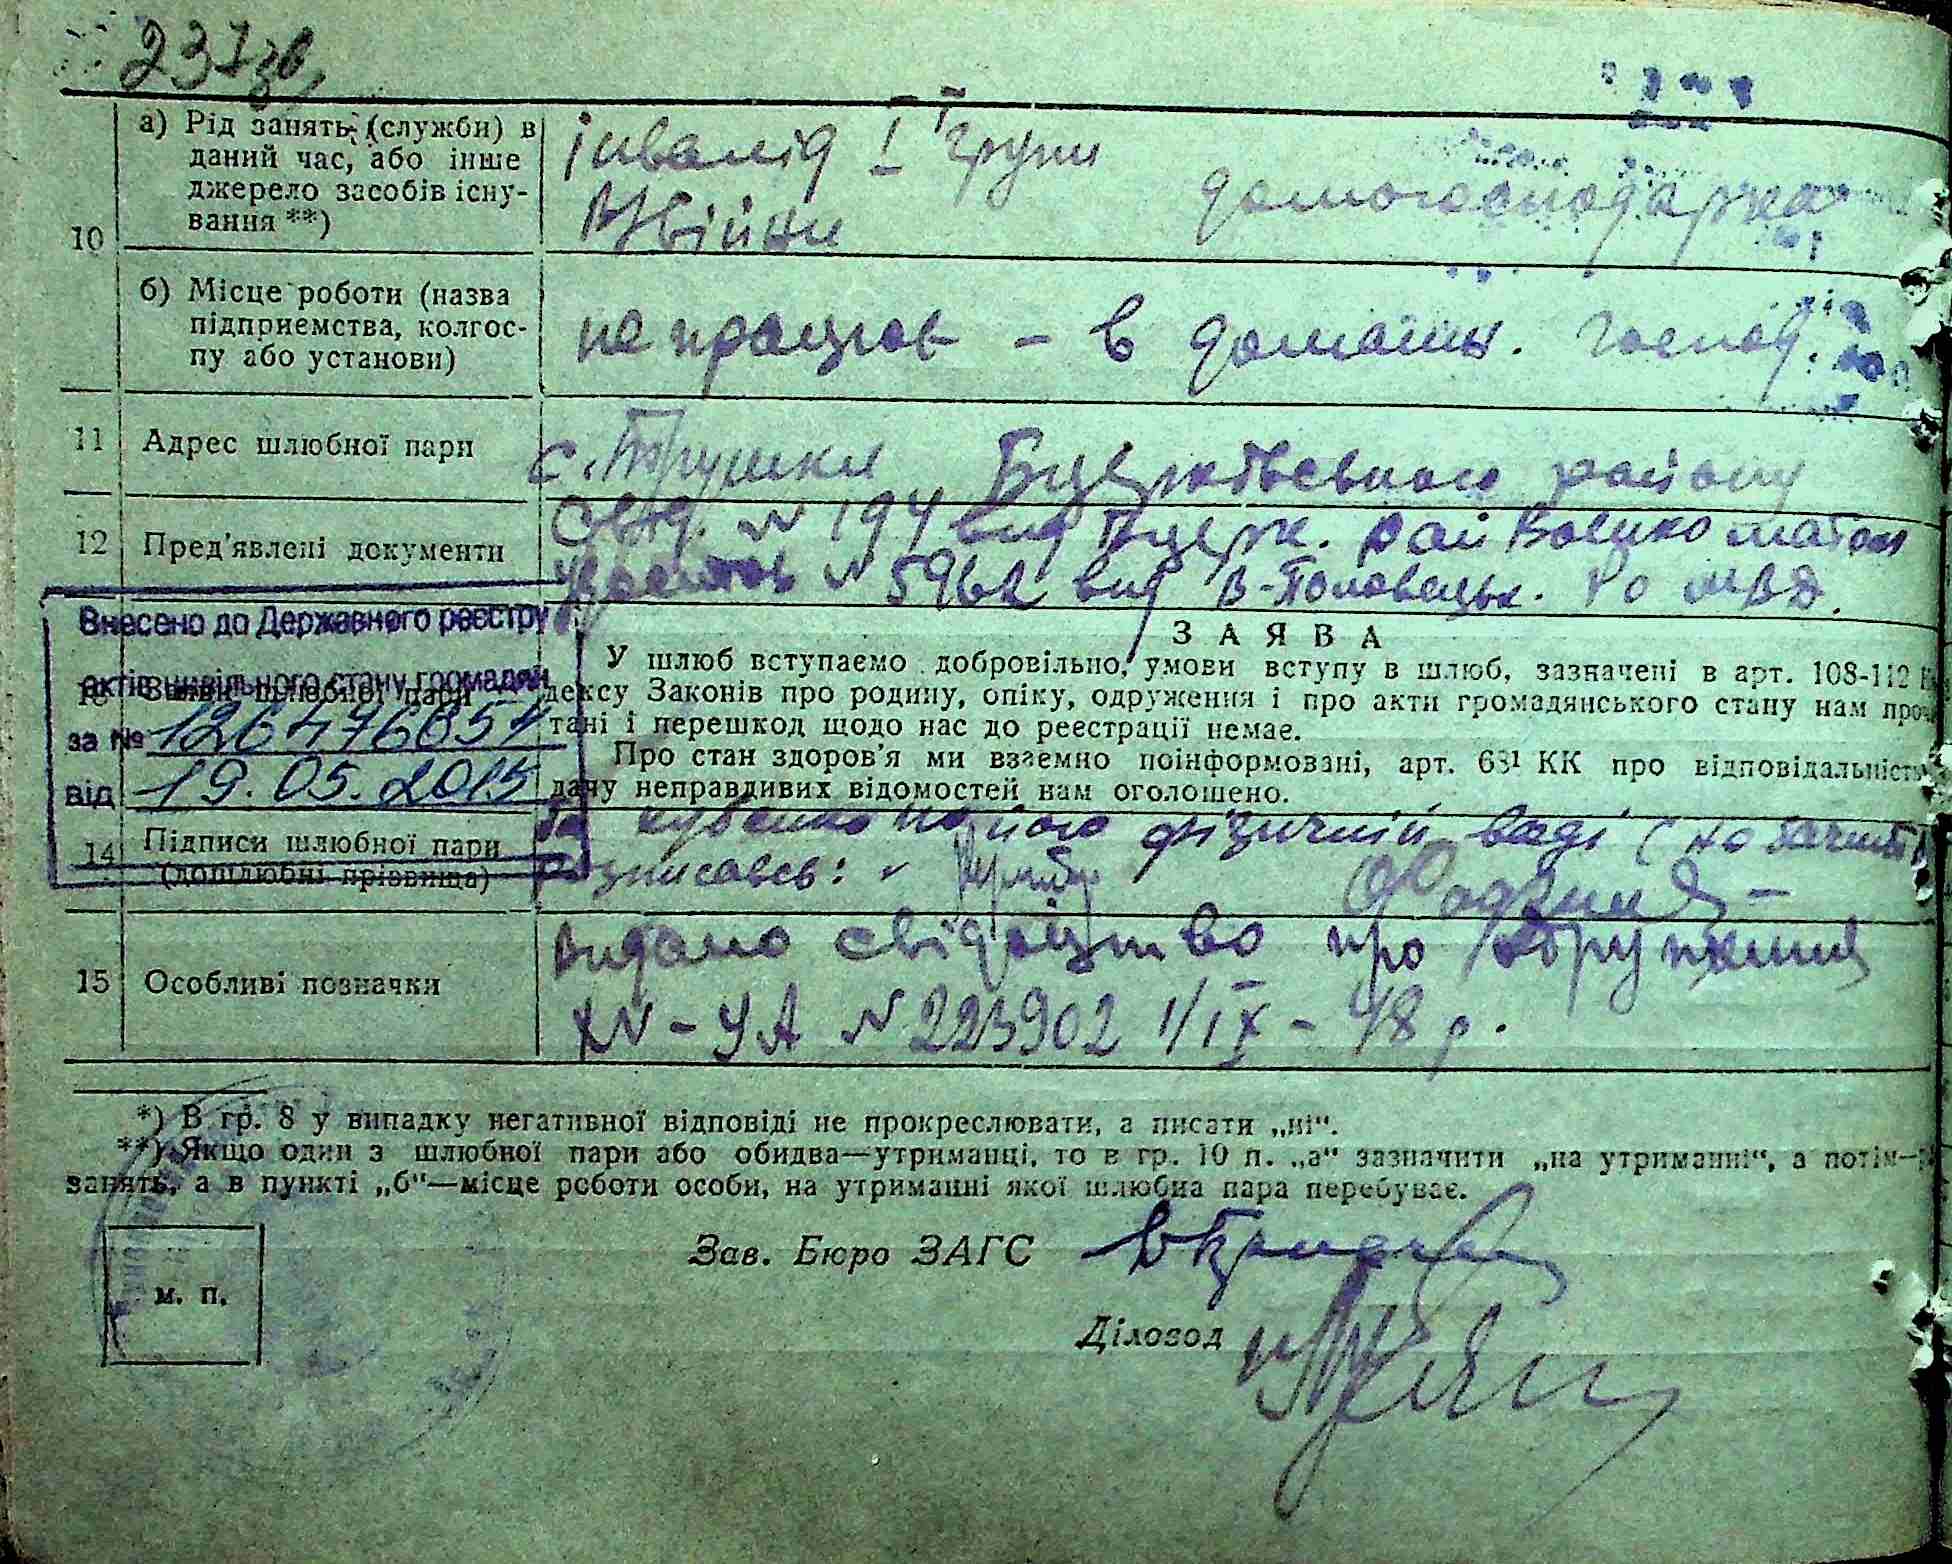 237зв.
10
а) Рід занять (служби) в
даний час, або інше
джерело засобів існу-
вання **)
інвалід І групи
В/війни
домогосподарка
б) Місце роботи (назва
підприємства, колгос-
пу або установи)
не працює – в домашн. господ.
11
Адрес шлюбної пари
с. Трушки Бцерковського району
12
Пред'явлені документи
№ 194 вид Бцерк. рай Воєнкоматом
№ 5962 вид В-Половецьк. Ро МВД.
Внесено до Державного реєстру
актів цивільного стану громадян
за № 126476654
від 19.05.2015
З А Я В А
У шлюб вступаємо добровільно, умови вступу в шлюб, зазначені в арт. 108-112
дексу Законів про родину, опіку, одруження і про акти громадянського стану нам проч
тані і перешкод щодо нас до реєстрації немає.
Про стан здоров'я ми взаємно поінформовані, арт. 68¹ КК про відповідальність
дачу неправдивих відомостей нам оголошено.
шлюбної пари
14
Підписи шлюбної пари
(дошлюбні прізвища)
За його фізичній ваді (не бачить
Розписавсь:
15
Особливі позначки
Видано свідоцтво про одруження
№ 223902 1/ІХ – 48 р.
*) В гр. 8 у випадку негативної відповіді не прокреслювати, а писати „ні“.
**) Якщо один з шлюбної пари або обидва—утриманці, то в гр. 10 п. „а“ зазначити „на утриманні“, а потім—
занять, а в пункті „б“—місце роботи особи, на утриманні якої шлюбна пара перебуває.
Зав. Бюро ЗАГС
м. п.
Діловод